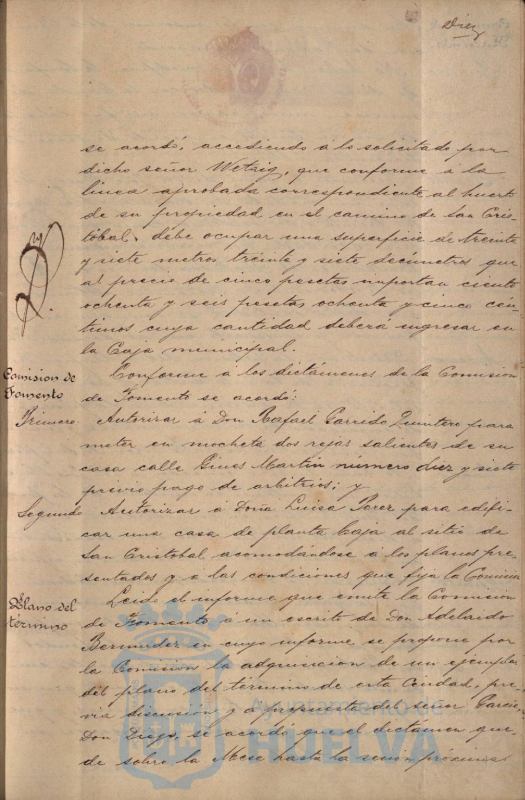 Diez
se acordó, accediendo á lo solicitado por
dicho señor Wetzig, que conforme á la
linea aprobada correspondiente al huerto
de su propiedad en el camino de San Cris-
tóbal, debe ocupar una superficie de treinta
y siete metros treinta y siete decímetros que
al precio de cinco pesetas importan ciento
ochenta y seis pesetas ochenta y cinco cén-
timos cuya cantidad deberá ingresar en
la Caja municipal.
Comision de
Fomento
Conforme á los dictámenes de la Comision
de Fomento se acordó:
Primero
Autorizar á Don Rafael Garrido Quintero para
meter en mocheta dos rejas salientes de su
casa calle Gines Martin número diez y siete
previo pago de arbitrios; y
Segundo
Autorizar á Doña Luisa Perez para edifi-
car una casa de planta baja al sitio de
San Cristobal acomodándose á los planos pre-
sentados y a las condiciones que fija la Comision
Plano del
término
Leido el informe que emite la Comision
de Fomento á un escrito de Don Adelardo
Bermudez en cuyo informe se propone por
la Comision la adquisicion de un ejemplar
del plano del término de esta Ciudad, pre-
via discusión y a propuesta del señor Garcia
Don Diego, se acordó que el dictamen que-
de sobre la Mesa hasta la sesion próxima
Ayuntamiento de
HUELVA